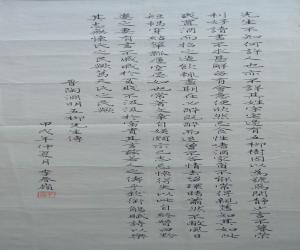 先生不知何許人也亦不詳其姓字宅邊有五柳樹因以為號焉閑靜少言不慕榮
利好讀書不求甚解每有會意便欣然忘食性嗜酒家貧不能常得親舊知其如此
或置酒而招之造飲輒盡期在必醉既醉而退曾不吝情去留環堵蕭然不蔽風日
短褐穿結簞瓢屢空晏如也常著文章自娛頗示己志忘懷得失以此自終贊曰黔
婁之妻有言不戚戚於貧賤不汲汲於富貴其言茲若人之儔乎銜觴賦詩以樂
其志無懷氏之民歟葛天氏之民歟
晉陶淵明五柳先生傳
甲戌仲夏月李登